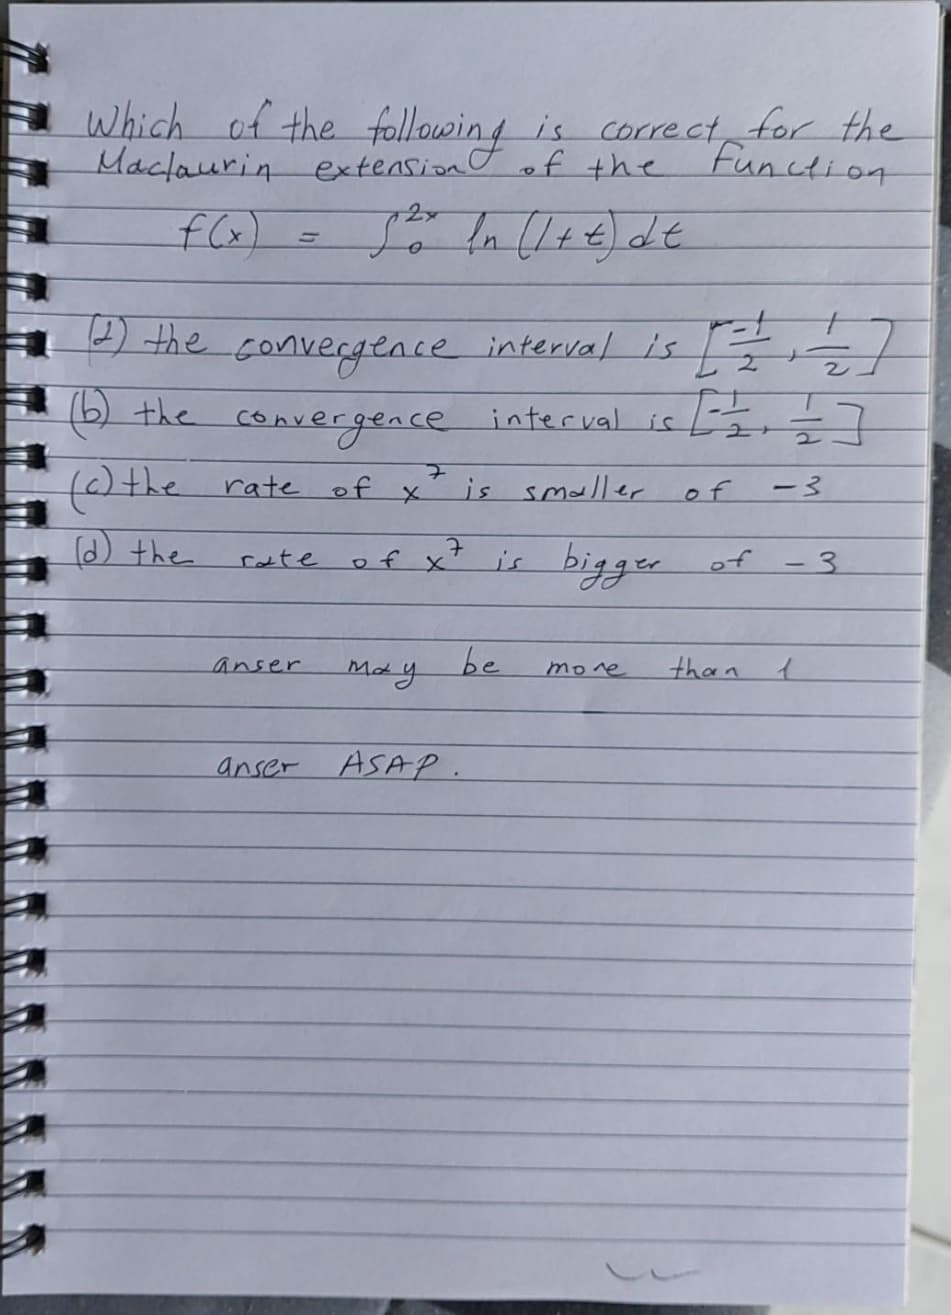 Which of the following is correct for the
Maclaurin extension of the Function
f(x) = ∫₀²ˣ ln (1+t) dt
(a) the convergence interval is [-1/2, 1/2]
(b) the convergence interval is [-1/2, 1/2]
(c) the rate of x⁷ is smaller of -3
(d) the rate of x⁷ is bigger of -3
anser may be more than 1
anser ASAP.